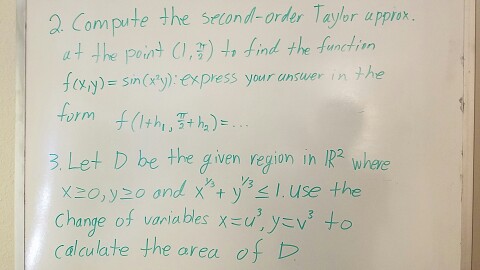 2. Compute the second-order Taylor approx.
at the point (1, π/2) to find the function
f(x,y) = sin(x²y): express your answer in the
form f(1+h₁, π/2+h₂) = ...
3. Let D be the given region in ℝ² where
x≥0, y≥0 and x^1/3 + y^1/3 ≤ 1. use the
Change of variables x=u³, y=v³ to
calculate the area of D.